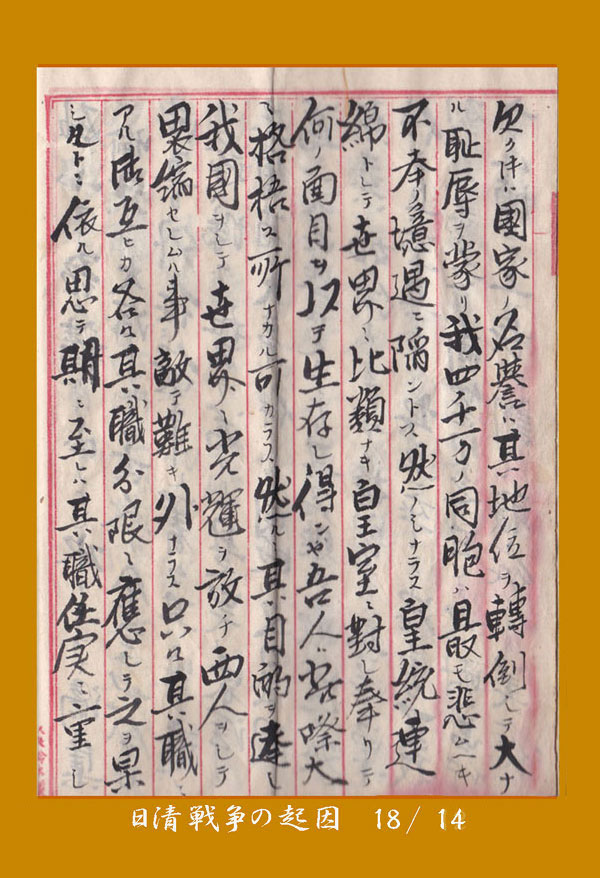 欠クトキハ國家ノ名譽ハ其地位ヲ轉倒シテ大ナ
ル恥辱ヲ蒙リ我四千万ノ同胞ハ最モ悲ムヘキ
不幸ノ境遇ニ陥ントス然ノミナラス皇統連
綿トシテ世界ニ比類ナキ皇室ニ對シ奉リテ
何ノ面目ヲ以テ生存シ得ンヤ吾人ハ此際大
ニ格悟スル所ナカル可カラス然ルニ其目的ヲ達シ
我國ヲシテ世界ニ光輝ヲ放チ西人ヲシテ
畏縮セシムルハ事敢テ難キ外ナラス只其職ニ
アル者互ヒカ各其職分限ニ應シテ之ヲ果
依ル思テ期ニ至レハ其職任実ニ重シ
日清戦争の起因 18/14